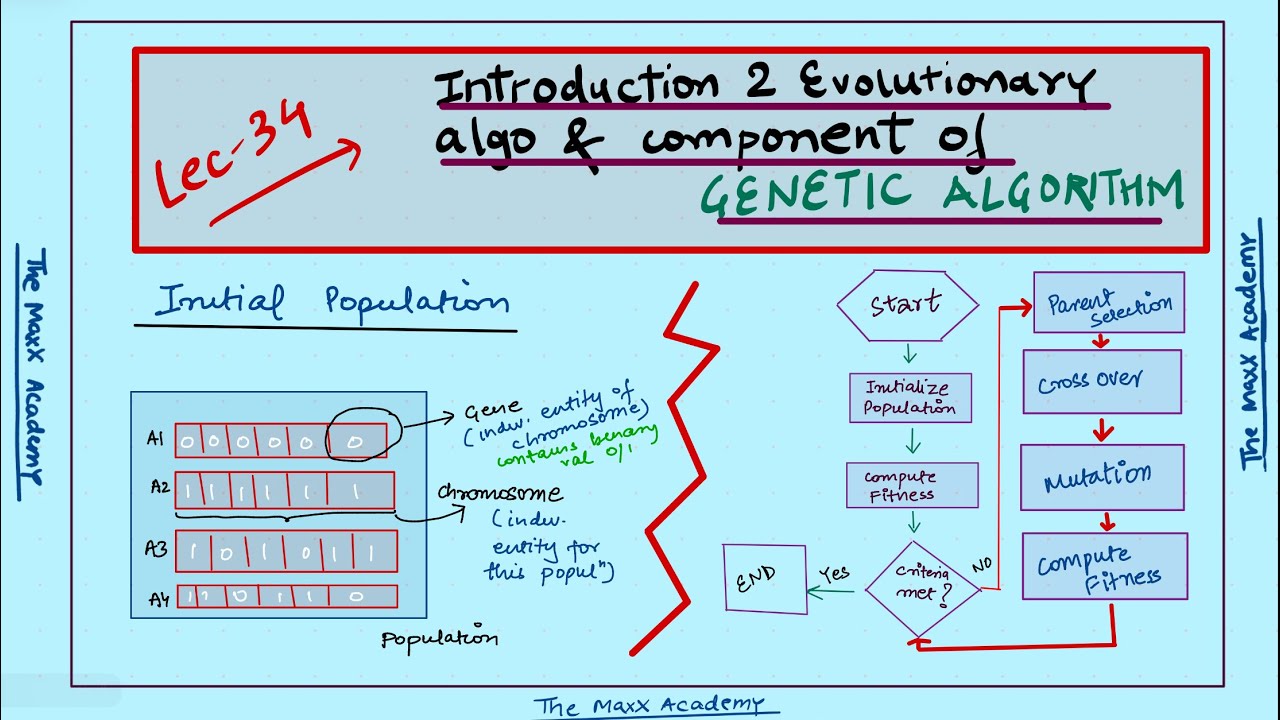 Lec-34
Introduction 2 Evolutionary
algo & component of
GENETIC ALGORITHM
The MaxX Academy
The MaxX Academy
Initial Population
A1 0 0 0 0 0 0
A2 1 1 1 1 1 1
A3 1 0 1 0 1 1
A4 1 1 0 1 1 0
Gene
(indiv. entity of
chromosome)
contains benary
val 0/1
Chromosome
(indiv.
entity for
this populⁿ)
Population
Start
Initialize
Population
Compute
Fitness
Criteria
met?
Yes
END
NO
Parent
Selection
Cross over
Mutation
Compute
Fitness
The MaxX Academy